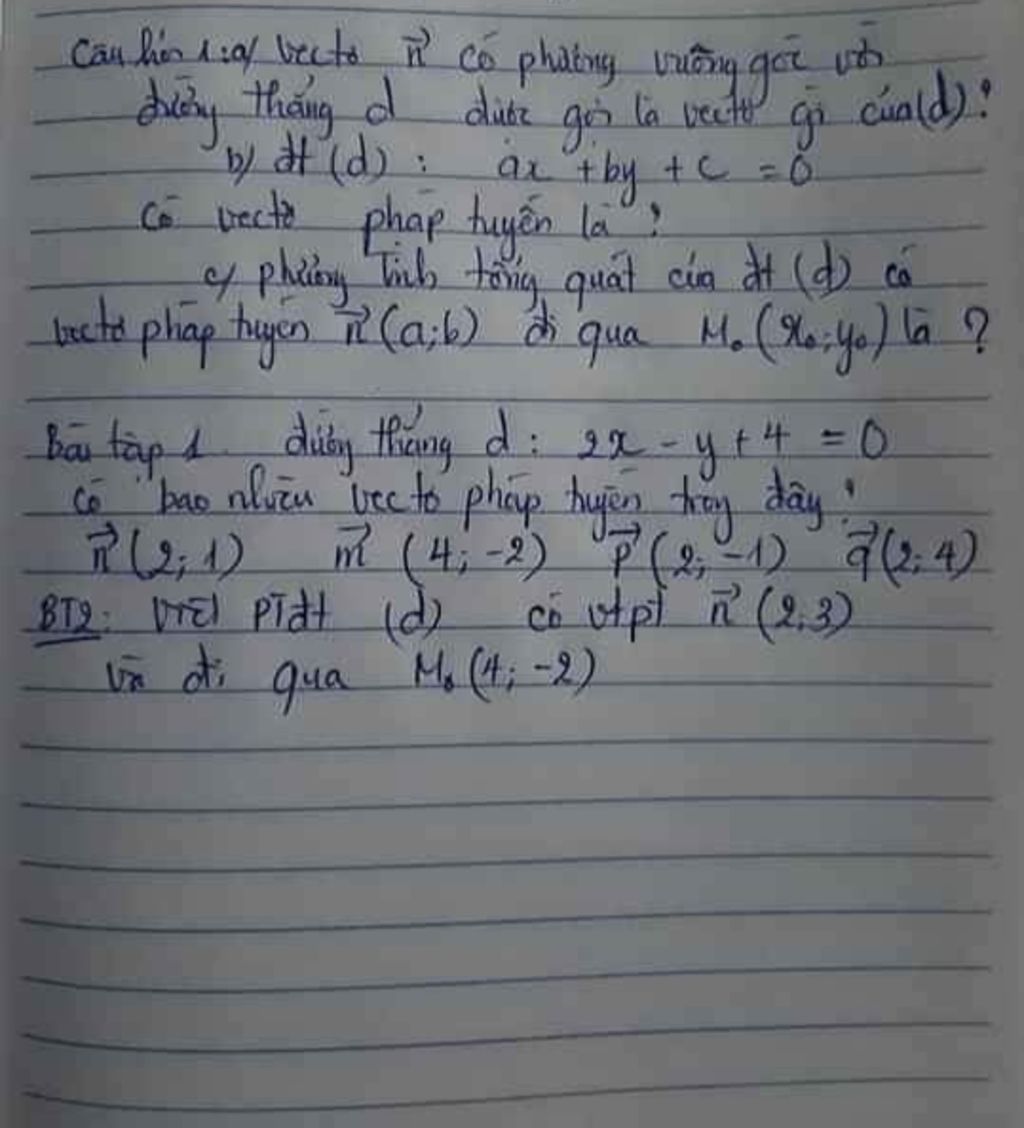 Câu hỏi 1: a/ vectơ n⃗ có phương vuông góc với
đường thẳng d được gọi là vectơ gì của (d)?
b/ đt (d): ax + by + c = 0
Có vectơ pháp tuyến là?
c/ phương trình tổng quát của đt (d) có
vectơ pháp tuyến n⃗ (a;b) đi qua M₀ (x₀; y₀) là ?
Bài tập 1 đường thẳng d: 2x - y + 4 = 0
có bao nhiêu vectơ pháp tuyến trong đây?
n⃗ (2; 1) m⃗ (4; -2) p⃗ (2; -1) q⃗ (2; 4)
BT2: Viết PTđt (d) có vtpt n⃗ (2; 3)
và đi qua M₀ (4; -2)